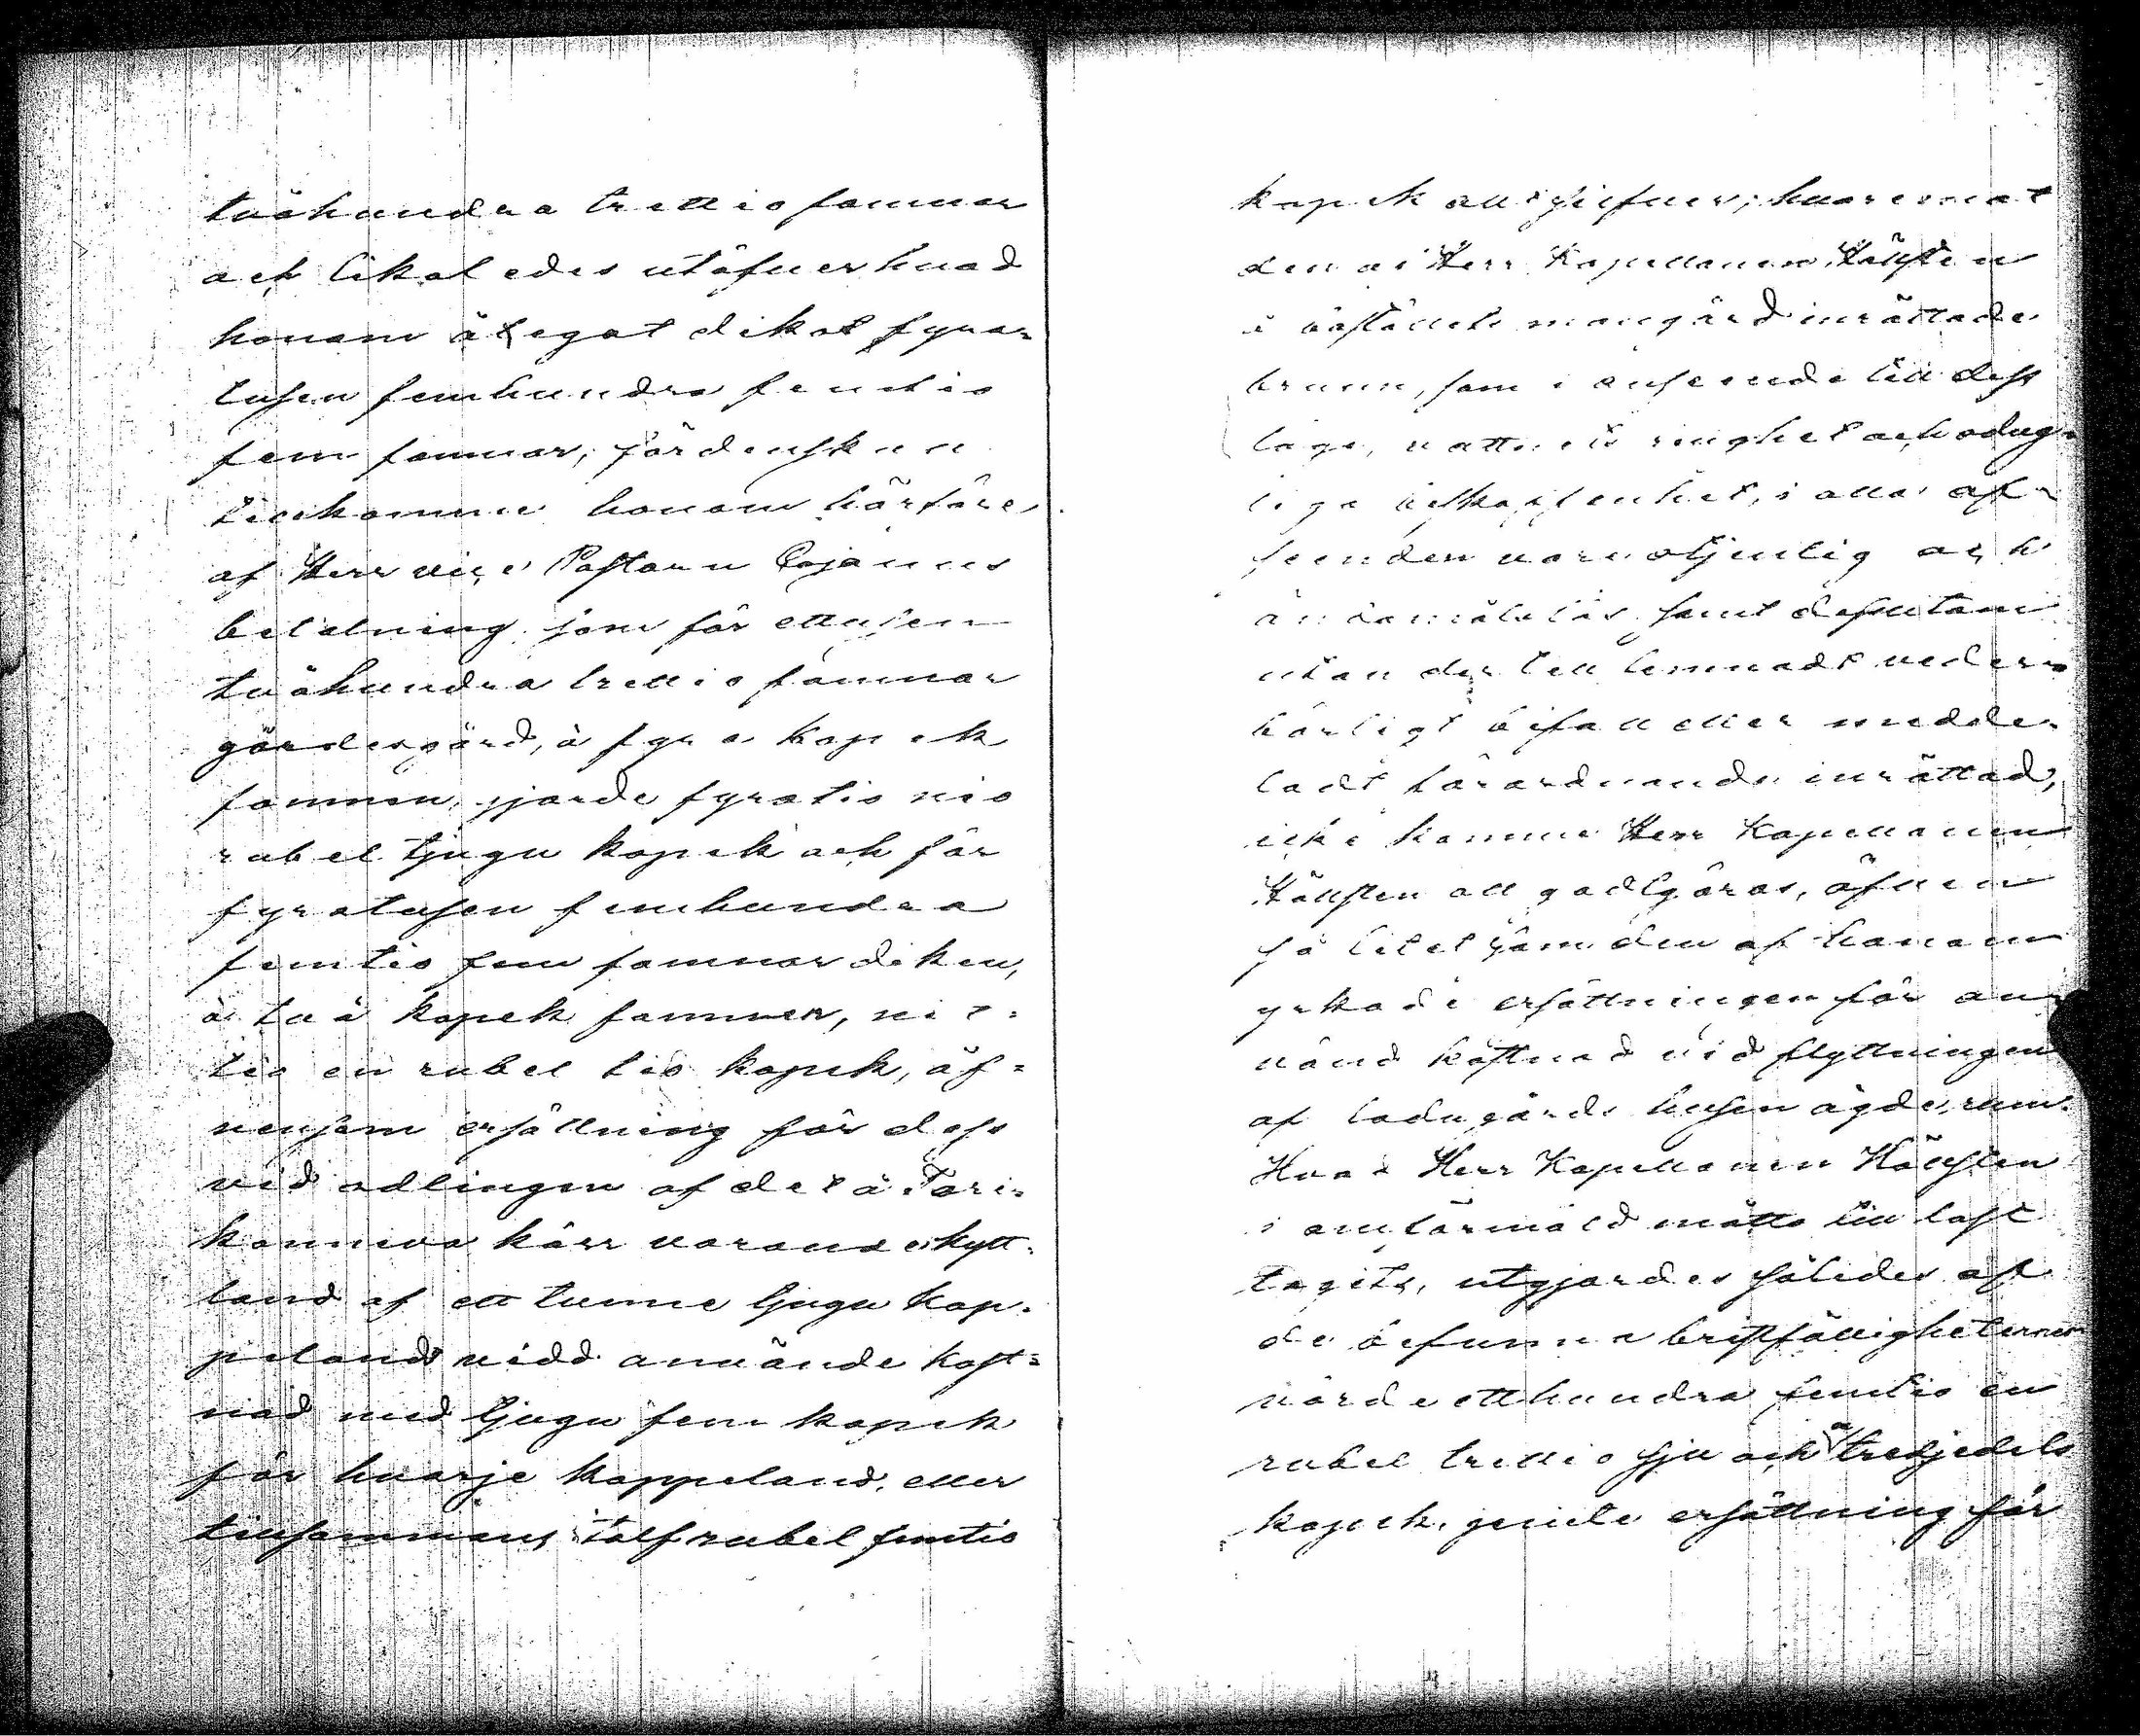 tvåhundra trettio famnar
och likaledes utöfver hvad
honom ålegat dikat fyra=
tusen femhundra femtio
fem famnar, fördenskull
tillkomme honom härföre
af Herr vice Pastorn Cajanus
betalning, som för ettusen
tvåhundra trettio famnar
gärdesgård, à fyra kopek
famnen, gjorde fyratio nio
rubel tjugu kopek och för
fyratusen femhundra
femtio fem famnar diken,
à två kopek famnen, nit=
tio en rubel tio kopek, äf=
vensom ersättning för dess
vid odlingen af det å Tari=
konneva kärr varande kytt=
land af ett tunne tjugu kap=
pelands vidd använde kost=
nad med tjugu fem kopek
för hvarje kappeland, eller
tillsammans Tolf rubel femtio
kopek allt silfver; hvaremot
den af Herr Kapellanen Hällsten
i boställets mangård inrättade
brunn, som i anseende till dess
läge, vattnets ringhet och odug=
liga beskaffenhet, i alla af=
seenden vore otjenlig och
ändamålslös samt dessutom
utan der till lemnadt veder=
börligt bifall eller medde=
ladt förordnande inrättad,
icke komme Herr Kapellanen
Hällsten att godtgöras, äfven
så litet som den af honom
yrkade ersättningen för an=
vänd kostnad vid flyttningen
af ladugårds husen ägde rum.
Hvad Herr Kapellanen Hällsten
i omförmäld måtto till last
, utgjordes således af
de befunna bristfälligheternes
värde etthundra femtio en
rubel trettio sju och en tredjedels
kopek, ersättning för